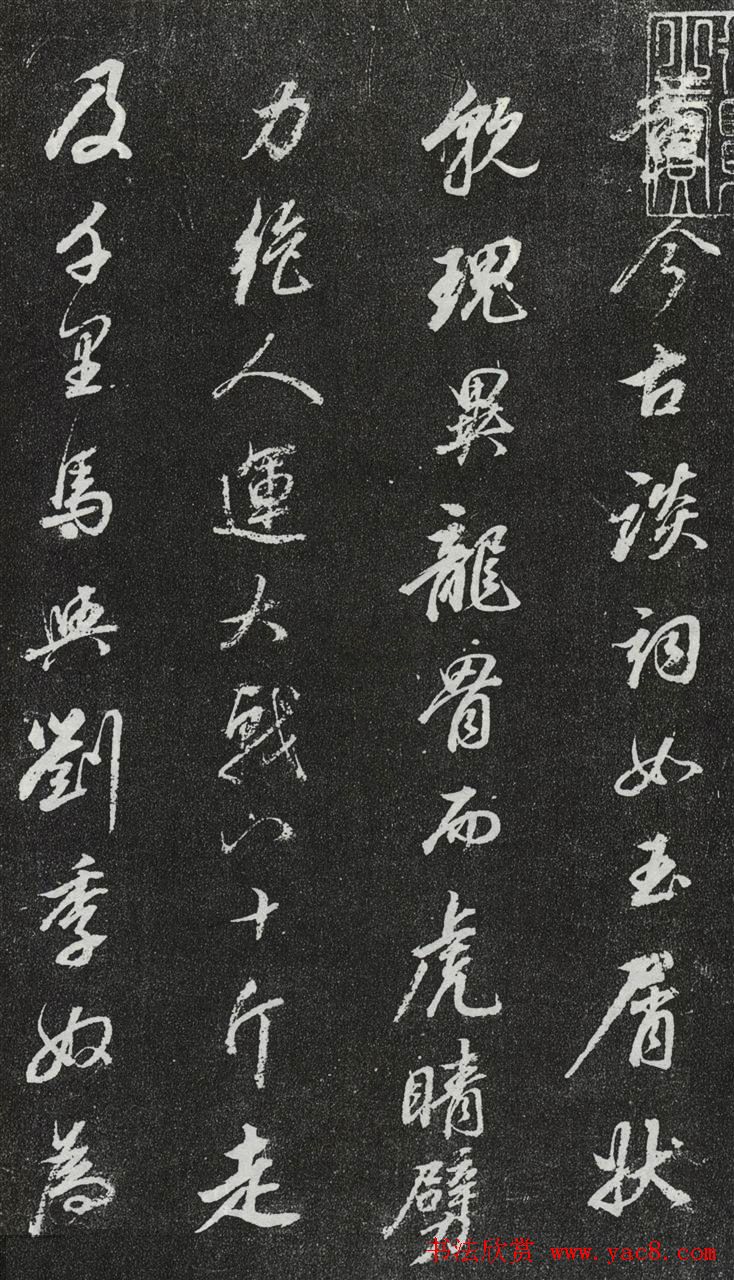 今古談詞如玉屑狀
貌瑰異龍骨而虎睛臂
力絕人運大戟八十斤走
及千里馬與劉季奴為
书法欣赏 www.yac8.com